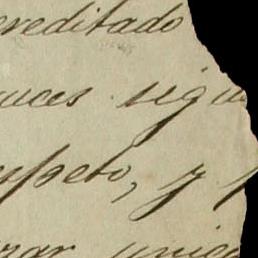 ereditado
uces sigu
speto, y p
rar unica